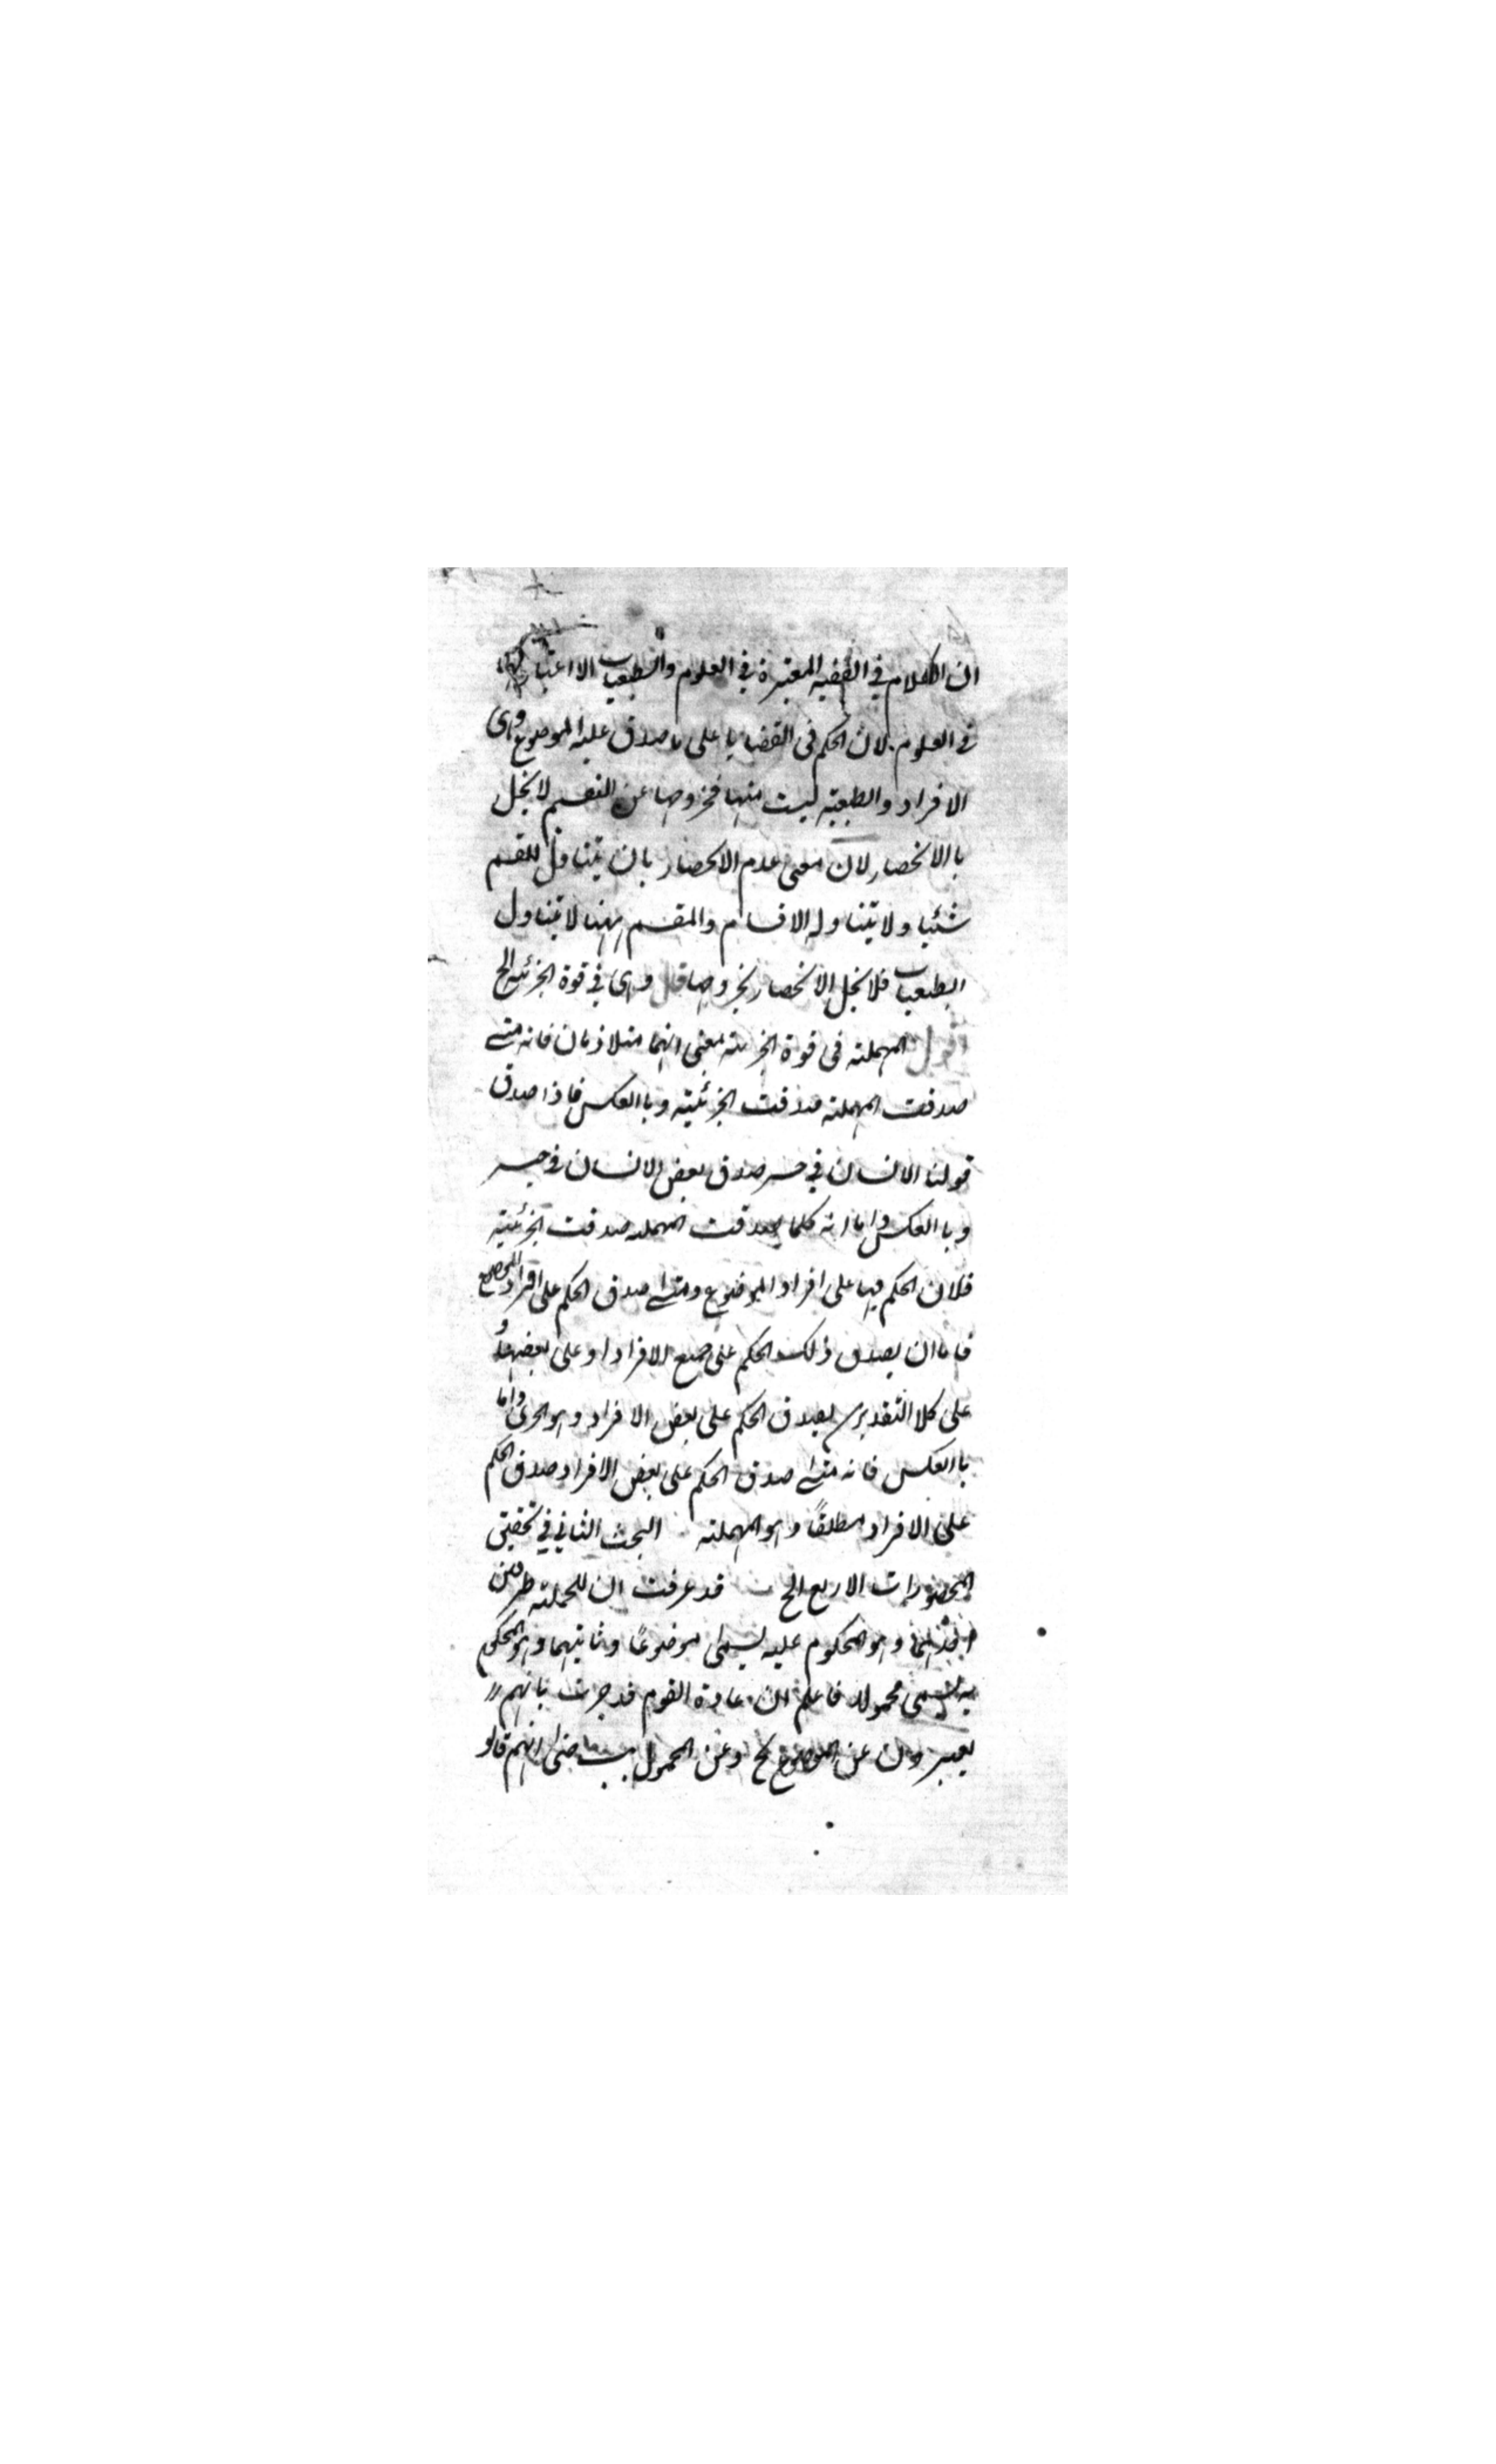 ان الكلام في القضيه المعتبرة في العلوم والطبعيات لا اعتبار لها
في العلوم لان الحكم في القضايا على ما صدق عليه الموضوع وهى
الافراد والطبعية ليست منها فخروجها عن التقسيم لا يخل
باالانحصار لان معنى عدم الانحصار بان يتناول المقسم
شئيا ولا يتناوله الاقسام والمقسم ههنا لا يتناول
الطبعيات فلا يخل الانحصار بخروجها قال وهى في قوة الجزئيه الخ
اقول المهملة فى قوة الجزئية بمعنى انهما متلازمان فانه متى
صدقت المهملة صدقت الجزئية وباالعكس فاذا صدق
قولنا الانسان في خسر صدق بعض الانسان في خسر
وباالعكس واما انه كلما صدقت المهمله صدقت الجزئية
فلان الحكم فيها على افراد الموضوع ومتى صدق الحكم على افراد الموضوع
فاما ان يصدق ذلك الحكم على جميع الافراد او على بعضها و
على كلا التقديرين يصدق الحكم على بعض الافراد وهو الجزئى واما
باالعكس فانه متى صدق الحكم على بعض الافراد صدق الحكم
على الافراد مطلقًا وهو المهملة البحث الثاني في تحقيق
المحصورات الاربع الخ قد عرفت ان للحملية طرفين
احدهما وهو المحكوم عليه يسمى موضوعًا وثانيهما وهو المحكوم
به يسمى محمولا فاعلم ان عادة القوم قد جرت بانهم
يعبرون عن الموضوع بج وعن المحمول بب حتى انهم قالو